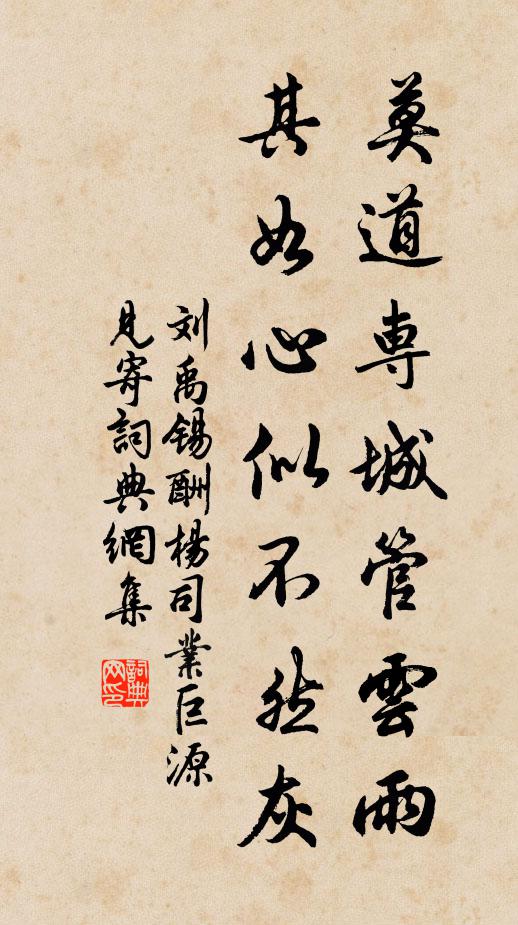 莫道専城管雲雨
其如心似不然灰
刘禹锡酬楊司業巨源
見寄詞典網集
詞典网印